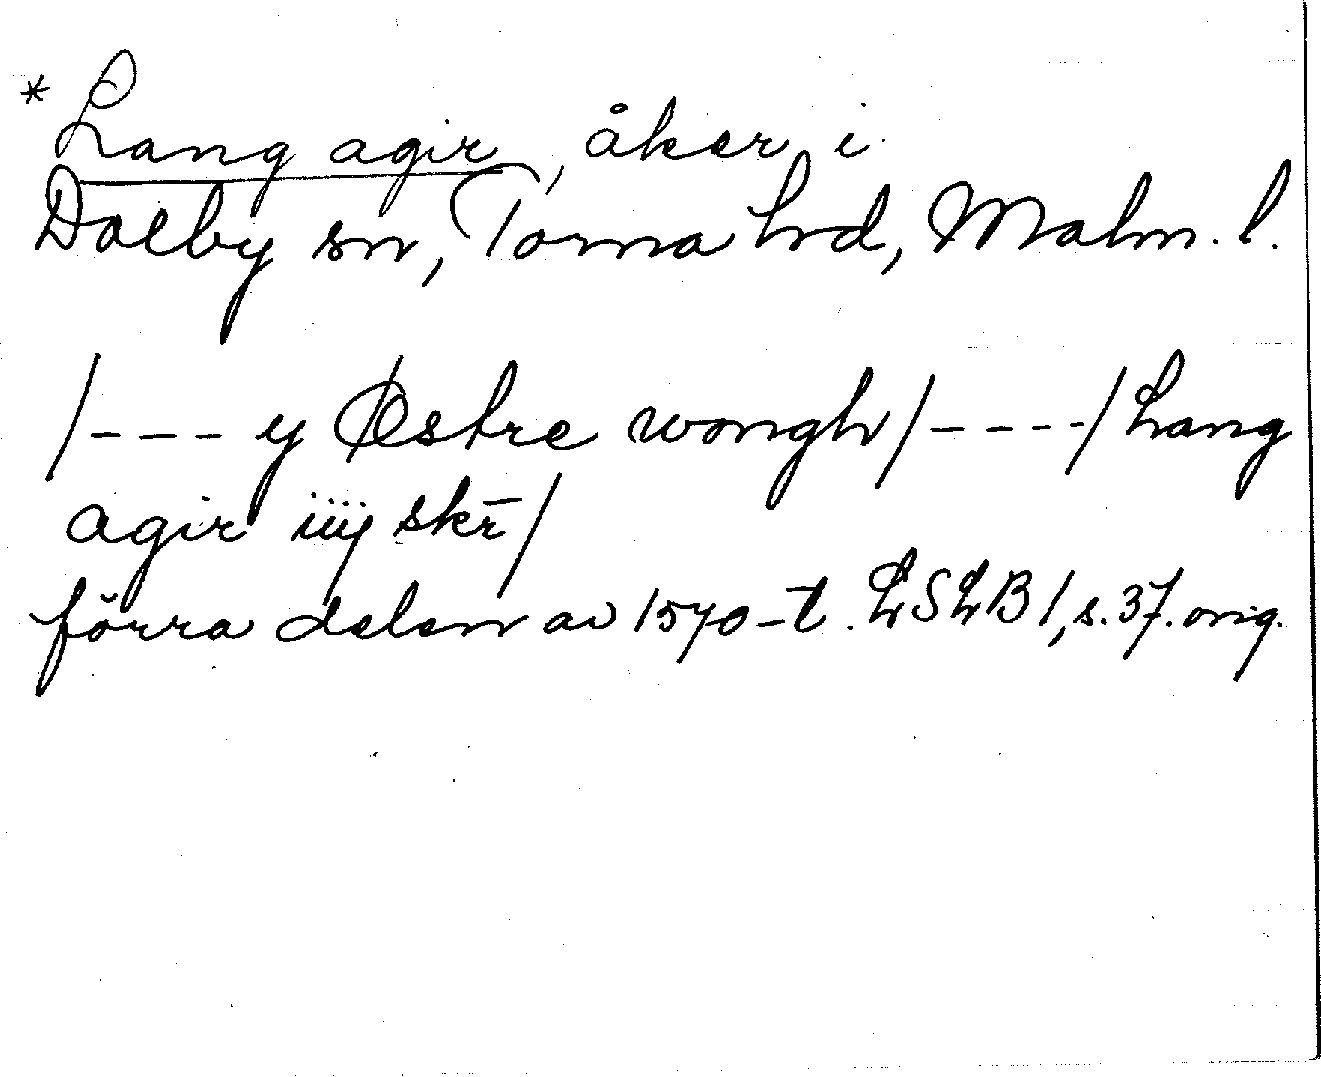 * Lang agir, åker i
Dalby sn, Torna hrd, Malm. l.
/--- y Østre wongh/----/Lang
agir iiij skr̄/
förra delen av 1570-t. LSLB 1, s. 37. orig.